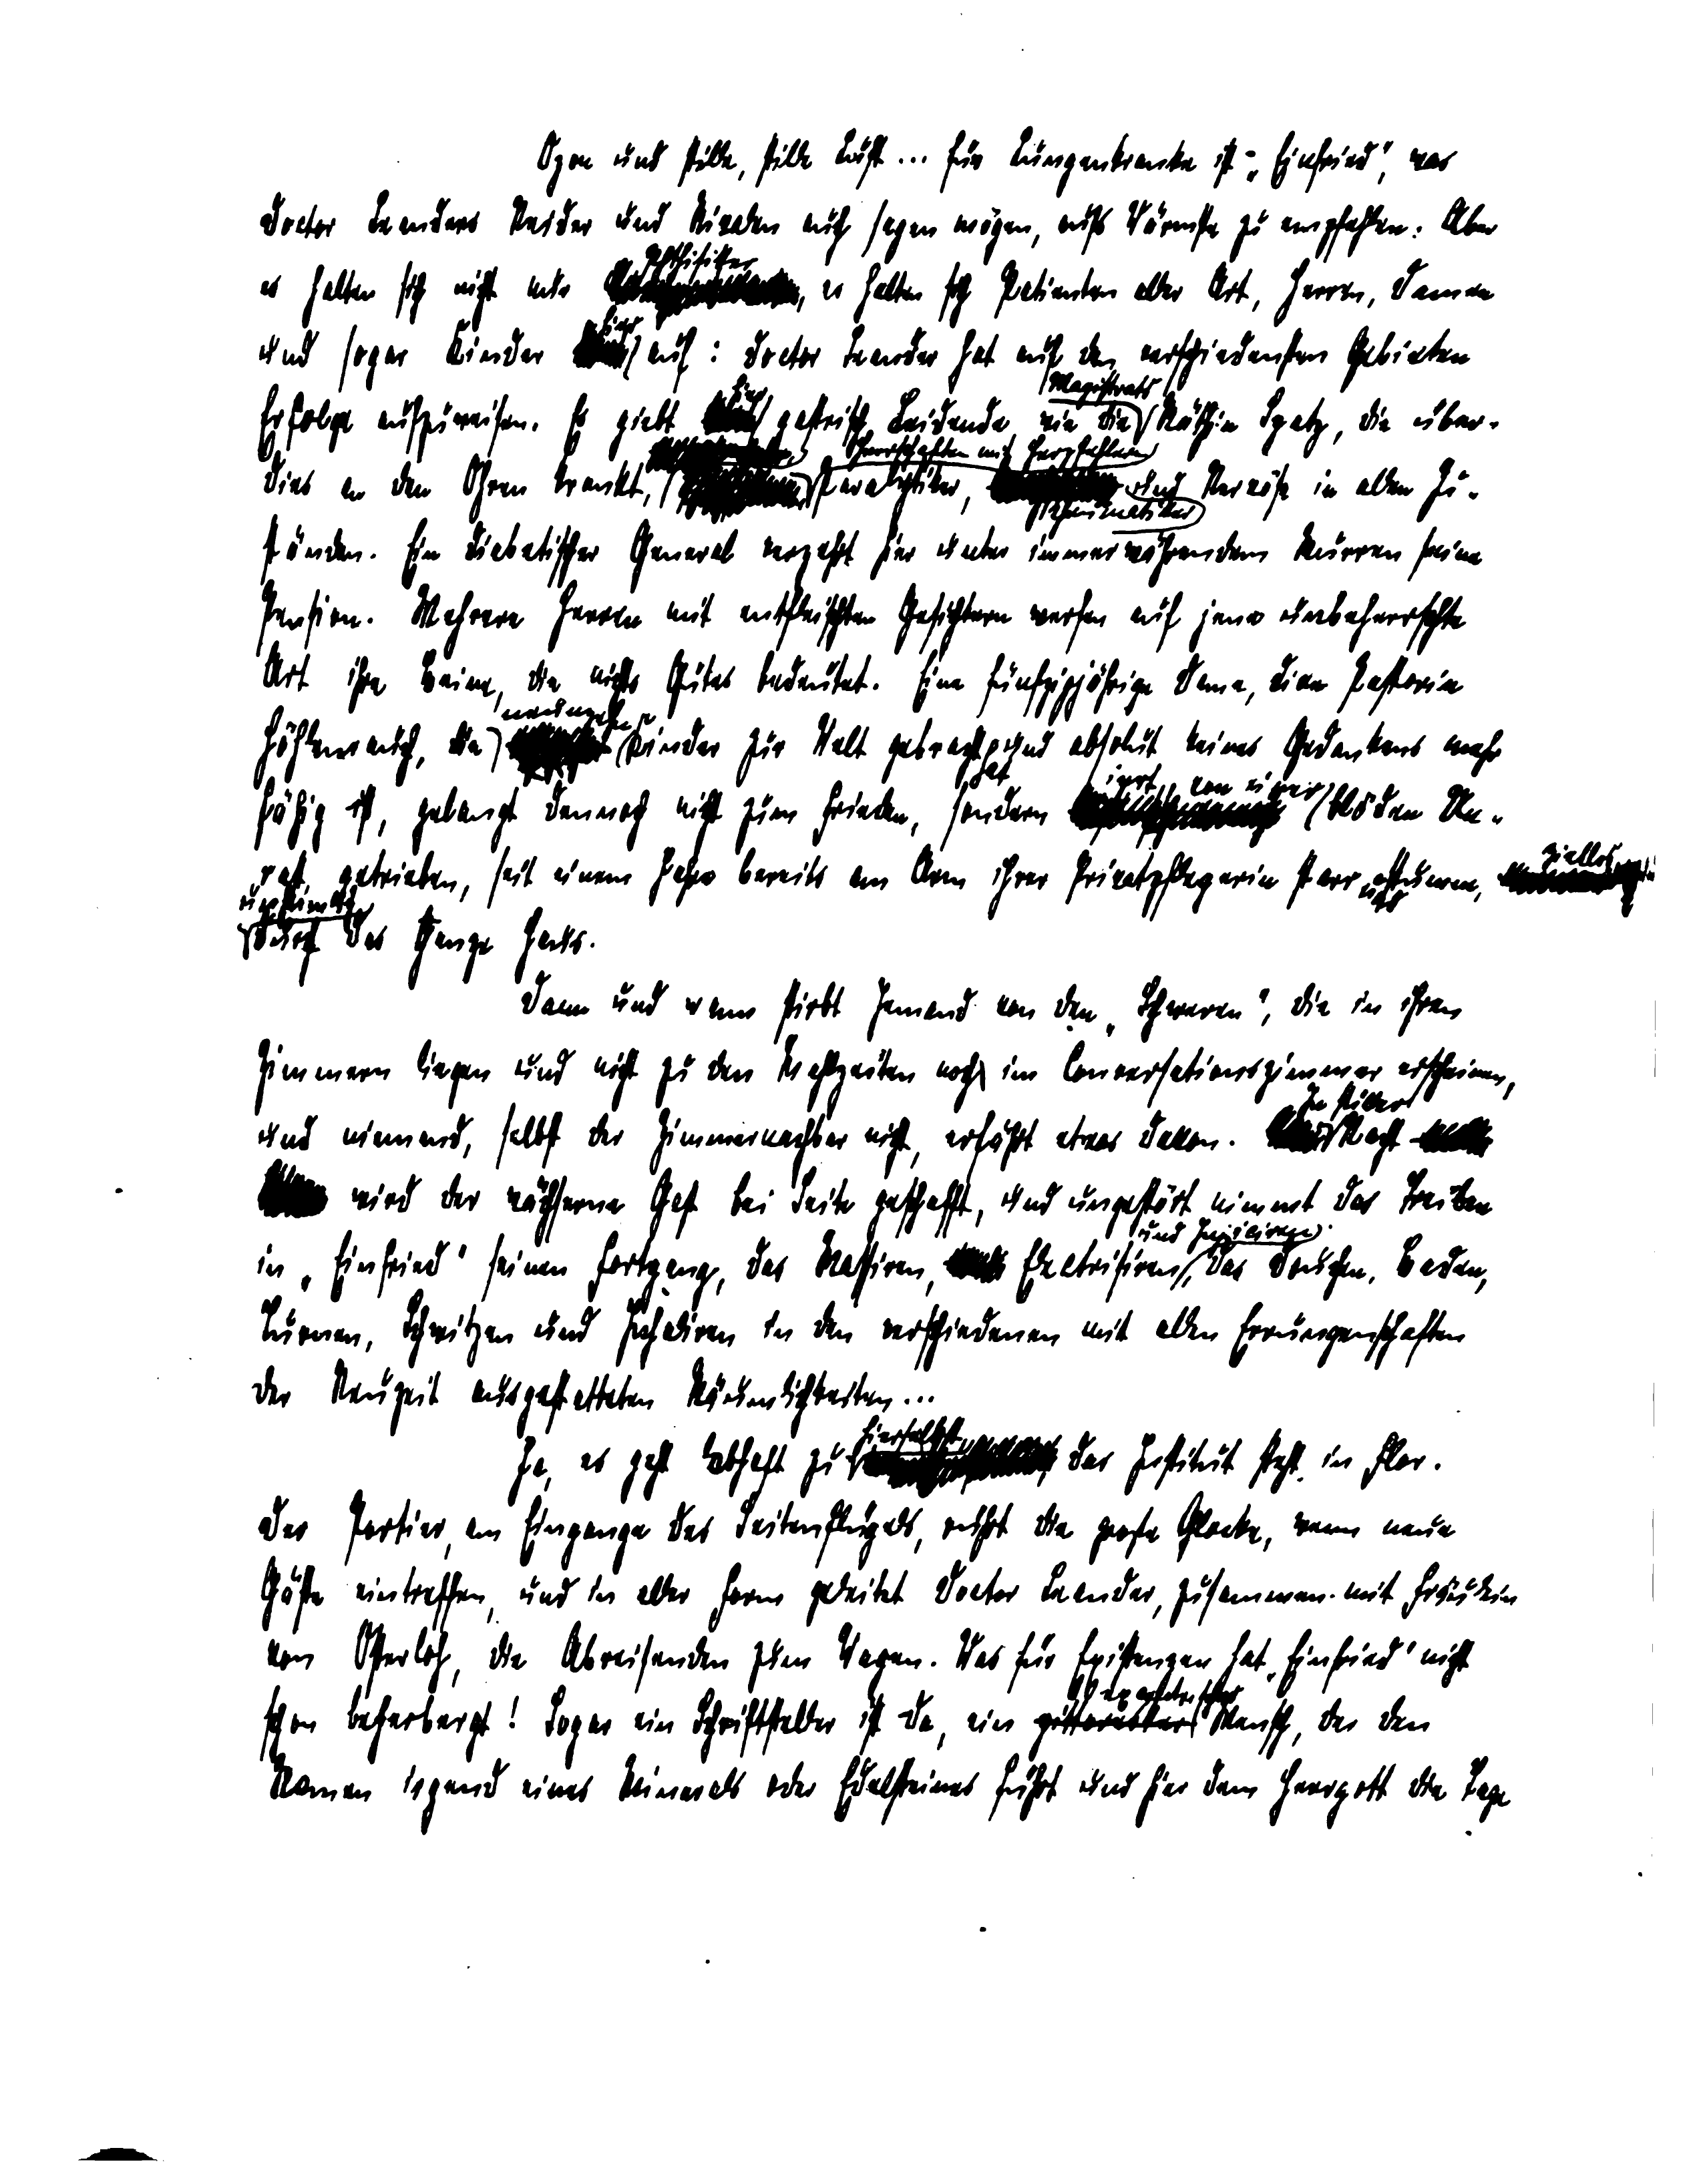 Ozon und stille, stille Luft ... für Lungenkranke ist „Einfried“, was
Doctor Leanders Neider und Rivalen auch sagen mögen, aufs Wärmste zu empfehlen. Aber
es halten sich nicht nur Phthisiker, es halten sich Patienten aller Art, Herren, Damen
und sogar Kinder hier auf: Doctor Leander hat auf den verschiedensten Gebieten
Erfolge aufzuweisen. Es giebt hier gastrisch Leidende wie die Magistrats Räthin Spatz, die über-
dies an den Ohren krankt, Herrschaften mit Herzfehlern, Paralytiker, Rheumatiker und Nervöse in allen Zu-
ständen. Ein diabetischer General verzehrt hier unter immerwährendem Murren seine
Pension. Mehrere Herren mit entfleischten Gesichtern werfen auf jene unbeherrschte
Art ihre Beine, die nichts Gutes bedeutet. Eine fünfzigjährige Dame, die Pastorin
Höhlenrauch, die neunzehn Kinder zur Welt gebracht hat und absolut keines Gedankens mehr
fähig ist, gelangt dennoch nicht zum Frieden, sondern irrt, von einer blöden Un-
rast getrieben, seit einem Jahre bereits am Arm ihrer Privatpflegerin starr und stumm, ziellos
und unheimlich durch das ganze Haus.
Dann und wann stirbt Jemand von den „Schweren“, die in ihren
Zimmern liegen und nicht zu den Mahlzeiten noch im Conversationszimmer erscheinen,
und niemand, selbst der Zimmernachbar nicht, erfährt etwas davon. In stiller Nacht
wird der wächserne Gast bei Seite geschafft, und ungestört nimmt das Treiben
in „Einfried“ seinen Fortgang, das Massiren, Electrisiren und Injiciren, das Douchen, Baden,
Turnen, Schwitzen und Inhaliren in den verschiedenen mit allen Errungenschaften
der Neuzeit ausgestatteten Räumlichkeiten ...
Ja, es geht lebhaft zu hierselbst. das Institut steht in Flor.
Der Portier, am Eingange des Seitenflügels, rührt die große Glocke, wenn neue
Gäste eintreffen, und in aller Form geleitet Doctor Leander, zusammen mit Fräulein
von Osterloh, die Abreisenden zum Wagen. Was für Existenzen hat „Einfried“ nicht
schon beherbergt! Sogar ein Schriftsteller ist da, ein excentrischer Mensch, der den
Namen irgend eines Minerals oder Edelsteines führt und hier dem Herrgott die Tage